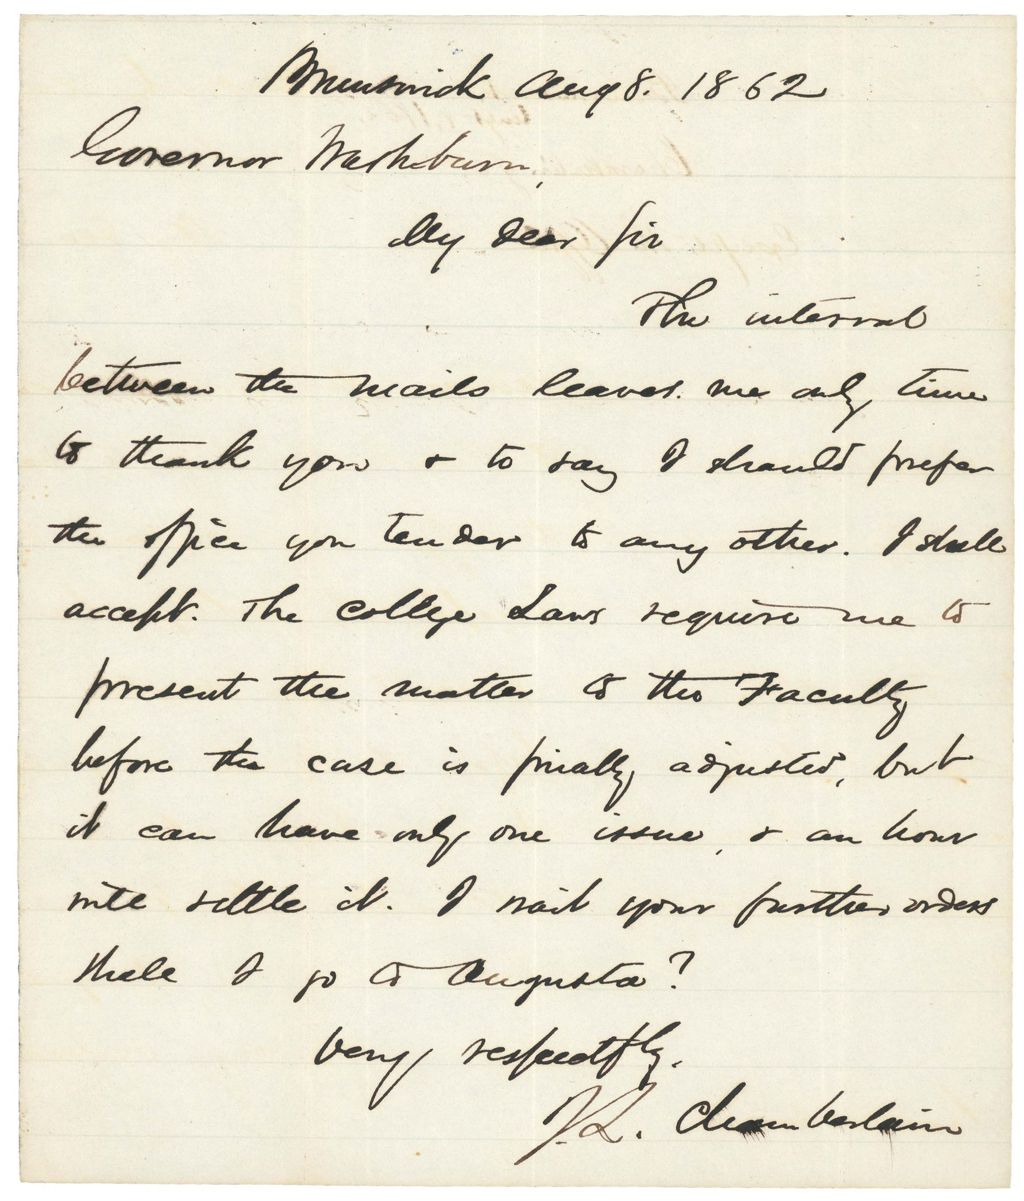 Brunswick Aug 8. 1862
Governor Washburn,
My dear Sir
The interval
between the mails leaves me only time
to thank you & to say I should prefer
the office you tender to any other. I shall
accept. The college Laws require me to
present the matter to the Faculty
before the case is finally adjusted, but
it can have only one issue, & an hour
will settle it. I wait your further orders
Shall I go to Augusta?
Very respectfly.
J. L. Chamberlain